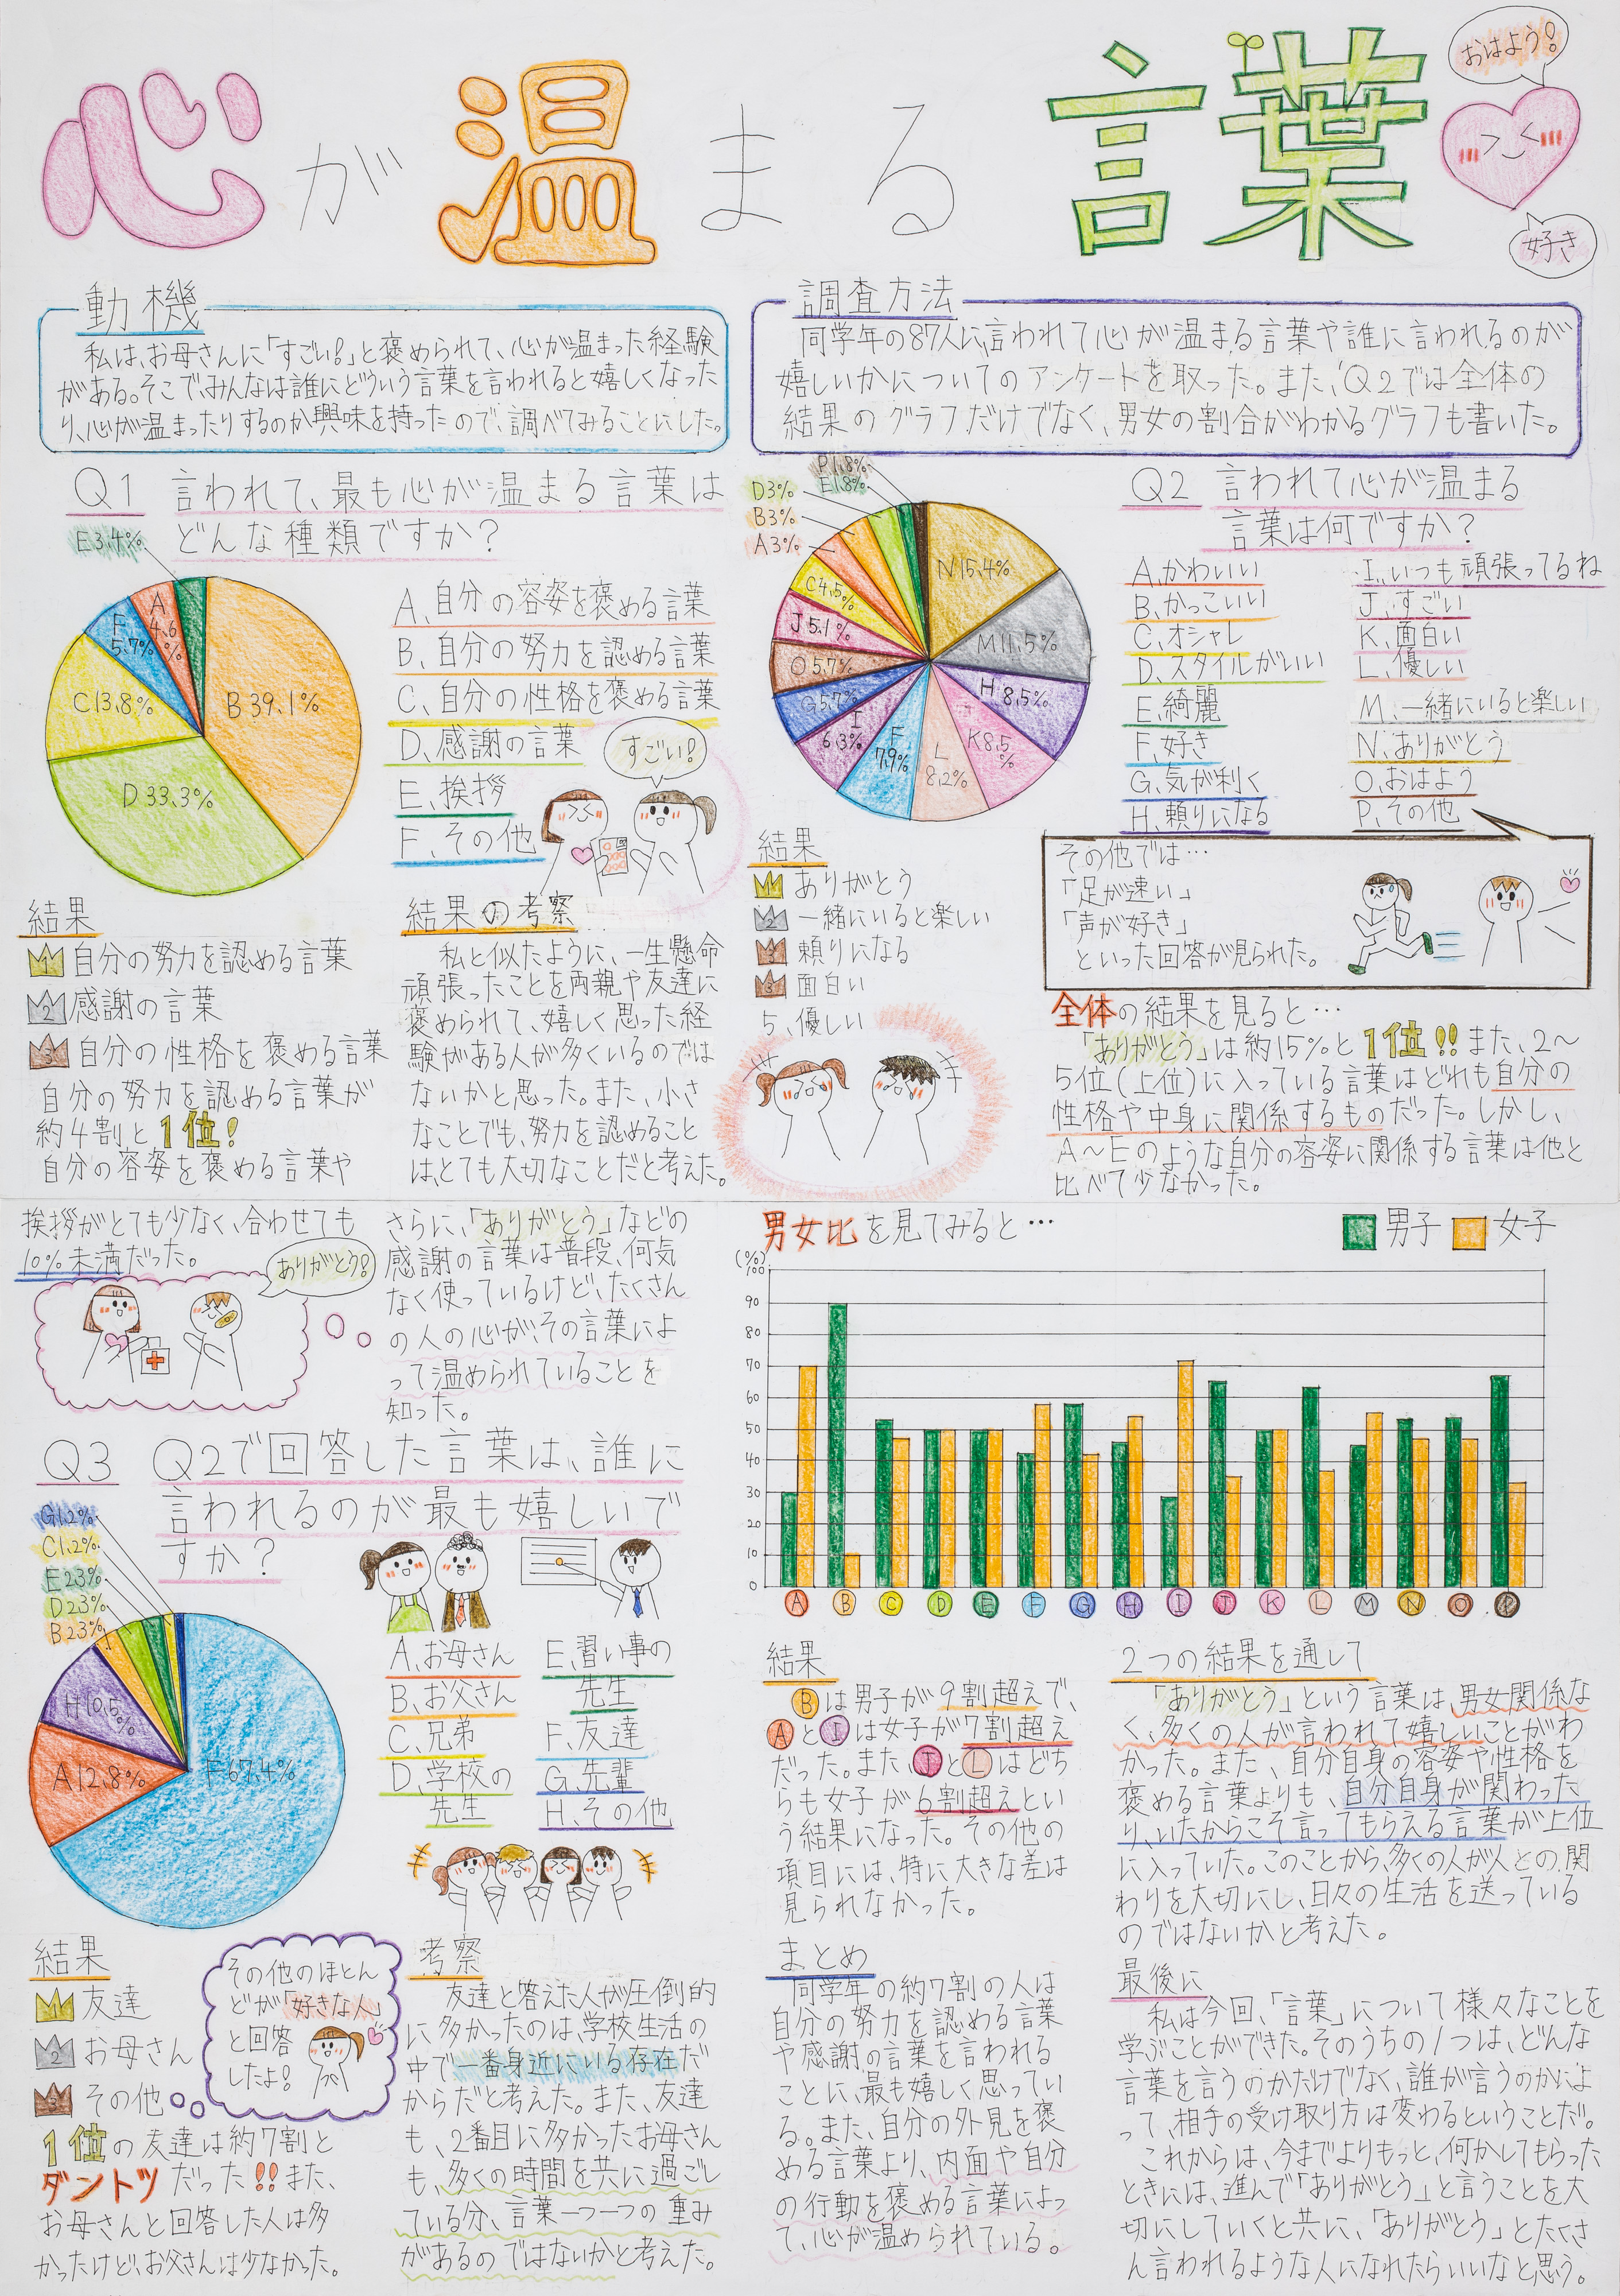 心が温まる言葉
おはよう!
好き
動機
私は、お母さんに「すごい!」と褒められて、心が温まった経験
がある。そこで、みんなは誰にどういう言葉を言われると嬉しくなった
り、心が温まったりするのか興味を持ったので、調べてみることにした。
調査方法
同学年の87人に言われて心が温まる言葉や誰に言われるのが
嬉しいかについてのアンケートを取った。また、Q2では全体の
結果のグラフだけでなく、男女の割合がわかるグラフも書いた。
Q1 言われて、最も心が温まる言葉は
どんな種類ですか?
E3.4%
A
4.6
%
F
5.7%
C13.8%
B39.1%
D33.3%
A、自分の容姿を褒める言葉
B、自分の努力を認める言葉
C、自分の性格を褒める言葉
D、感謝の言葉
E、挨拶
F、その他
すごい!
結果
1 自分の努力を認める言葉
2 感謝の言葉
3 自分の性格を褒める言葉
自分の努力を認める言葉が
約4割と1位!
自分の容姿を褒める言葉や
挨拶がとても少なく、合わせても
10%未満だった。
ありがとう!
結果の考察
私と似たように、一生懸命
頑張ったことを両親や友達に
褒められて、嬉しく思った経
験がある人が多くいるのでは
ないかと思った。また、小さ
なことでも、努力を認めること
は、とても大切なことだと考えた。
さらに、「ありがとう」などの
感謝の言葉は普段、何気
なく使っているけど、たくさん
の人の心が、その言葉によ
って温められていることを
知った。
Q2 言われて心が温まる
言葉は何ですか?
P1.8%
E1.8%
D3%
B3%
A3%
C4.5%
J5.1%
O5.7%
G5.7%
I
6.3%
F
7.9%
L
8.2%
K8.5
%
H8.5%
M11.5%
N15.4%
A、かわいい
B、かっこいい
C、オシャレ
D、スタイルがいい
E、綺麗
F、好き
G、気が利く
H、頼りになる
I、いつも頑張ってるね
J、すごい
K、面白い
L、優しい
M、一緒にいると楽しい
N、ありがとう
O、おはよう
P、その他
結果
1 ありがとう
2 一緒にいると楽しい
3 頼りになる
3 面白い
5、優しい
その他では…
「足が速い」
「声が好き」
といった回答が見られた。
全体の結果を見ると…
「ありがとう」は約15%と1位!!また、2～
5位(上位)に入っている言葉はどれも自分の
性格や中身に関係するものだった。しかし、
A～Eのような自分の容姿に関係する言葉は他と
比べて少なかった。
男女比を見てみると…
男子 女子
(%)
100
90
80
70
60
50
40
30
20
10
0
A B C D E F G H I J K L M N O P
結果
Bは男子が9割超えで、
AとIは女子が7割超え
だった。また、JとLはどち
らも女子が6割超えとい
う結果になった。その他の
項目には、特に大きな差は
見られなかった。
2つの結果を通して
「ありがとう」という言葉は、男女関係な
く、多くの人が言われて嬉しいことがわ
かった。また、自分自身の容姿や性格を
褒める言葉よりも、自分自身が関わった
り、いたからこそ言ってもらえる言葉が上位
に入っていた。このことから、多くの人が人との関
わりを大切にし、日々の生活を送っている
のではないかと考えた。
Q3 Q2で回答した言葉は、誰に
言われるのが最も嬉しいで
すか?
G1.2%
C1.2%
E2.3%
D2.3%
B2.3%
H10.5%
A12.8%
F67.4%
A、お母さん
B、お父さん
C、兄弟
D、学校の
先生
E、習い事の
先生
F、友達
G、先輩
H、その他
結果
1 友達
2 お母さん
3 その他
その他のほとん
どが「好きな人」
と回答
したよ!
1位の友達は約7割と
ダントツだった!!また、
お母さんと回答した人は多
かったけど、お父さんは少なかった。
考察
友達と答えた人が圧倒的
に多かったのは、学校生活の
中で一番身近にいる存在だ
からだと考えた。また、友達
も、2番目に多かったお母さん
も、多くの時間を共に過ごし
ている分、言葉一つ一つの重み
があるのではないかと考えた。
まとめ
同学年の約7割の人は
自分の努力を認める言葉
や感謝の言葉を言われる
ことに、最も嬉しく思ってい
る。また、自分の外見を褒
める言葉より、内面や自分
の行動を褒める言葉によっ
て、心が温められている。
最後に
私は今回、「言葉」について様々なことを
学ぶことができた。そのうちの1つは、どんな
言葉を言うのかだけでなく、誰が言うのかによ
って、相手の受け取り方は変わるということだ。
これからは、今までよりもっと、何かしてもらった
ときには、進んで「ありがとう」と言うことを大
切にしていくと共に、「ありがとう」とたくさ
ん言われるような人になれたらいいなと思う。